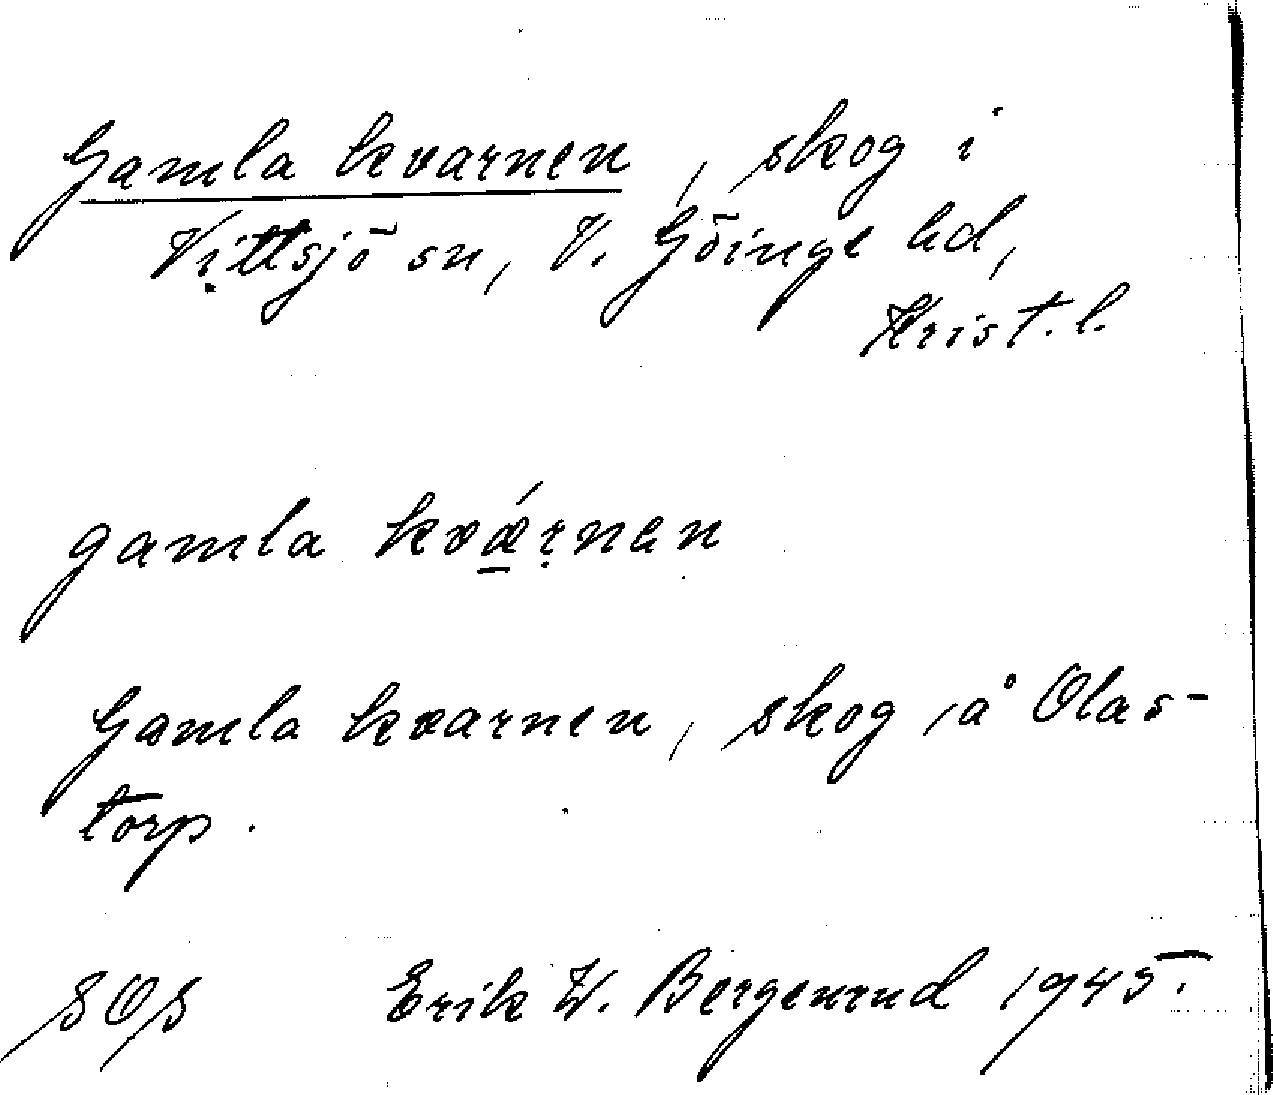 Gamla kvarnen, skog i
Vittsjö sn, V. Göinge hd,
Krist. l.
gamla kvǽ̱ṛnan
Gamla kvarnen, skog å Olas-
torp.
SOS Erik W. Bergenrud 1945.